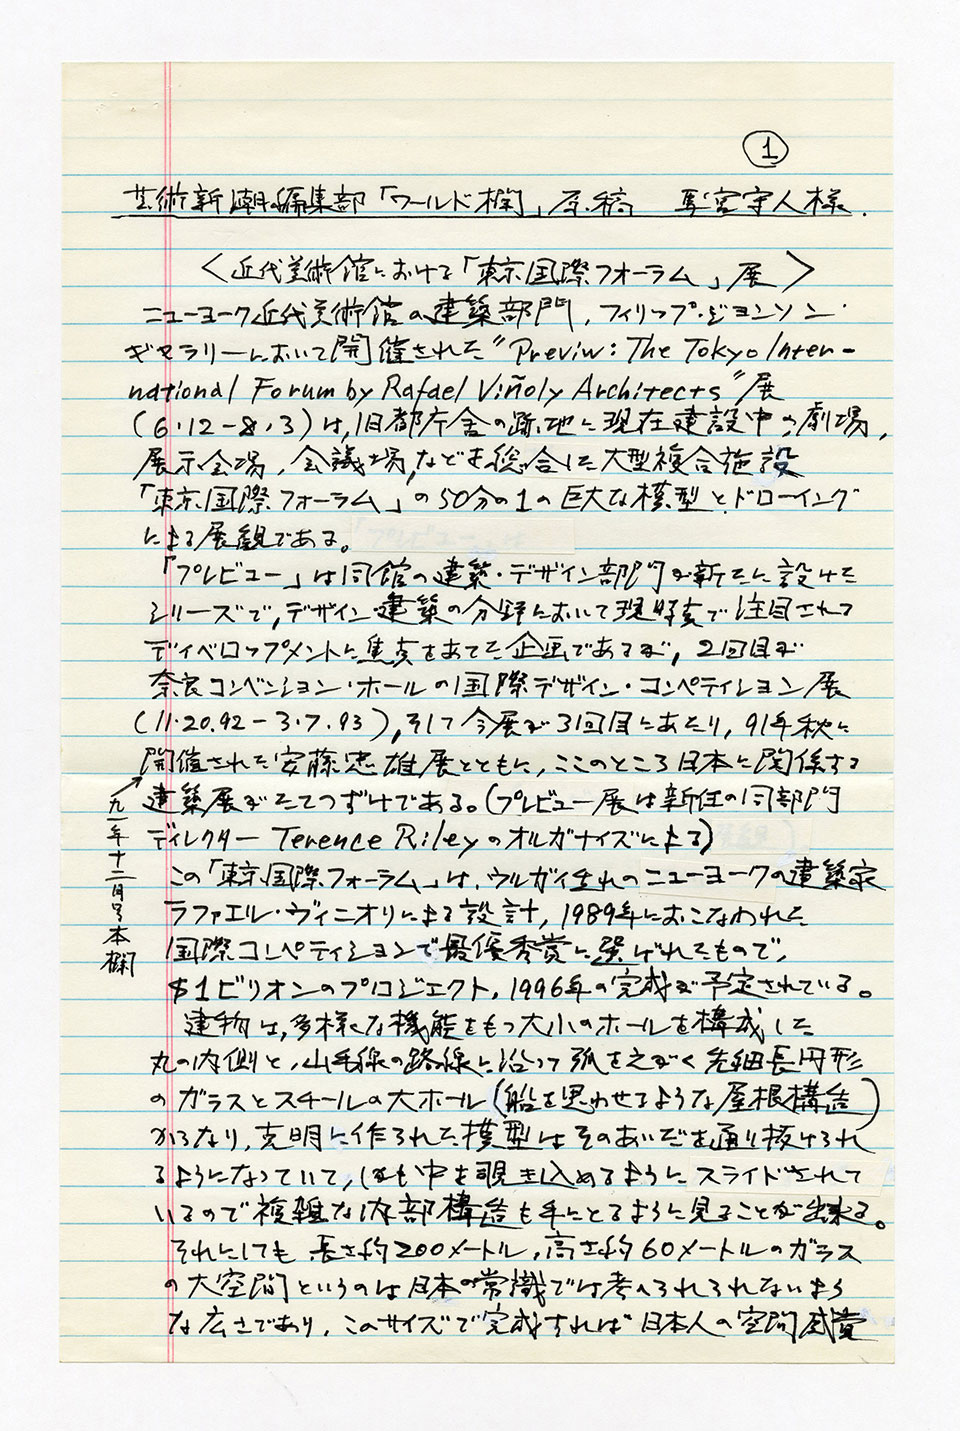 ①
芸術新潮編集部「ワールド欄」原稿 馬宮守人様.
〈近代美術館における「東京国際フォーラム」展〉
ニューヨーク近代美術館の建築部門, フィリップ・ジョンソン・
ギャラリーにおいて開催された"Previw: The Tokyo Inter-
national Forum by Rafael Viñoly Architects"展
(6・12-8・3)は,旧都庁舎の跡地に現在建設中の劇場,
展示会場, 会議場,などを総合した大型複合施設
「東京国際フォーラム」の50分の1の巨大な模型とドローイング
による展観である。
「プレビュー」は同館の建築・デザイン部門が新たに設けた
シリーズで,デザイン建築の分野において現時点で注目される
ディベロップメントに焦点をあてた企画であるが, 2回目が
奈良コンベンション・ホールの国際デザイン・コンペティション展
(11・20.92-3・7.93),そして今展が3回目にあたり, 91年秋に
開催された安藤忠雄展とともに,ここのところ日本に関係する
建築展がたてつづけである。(プレビュー展は新任の同部門
ディレクター Terence Rileyのオルガナイズによる)
九一年十二月号本欄
この「東京国際フォーラム」は,ウルガイ生れのニューヨークの建築家
ラファエル・ヴィニオリによる設計, 1989年におこなわれた
国際コンペティションで最優秀賞に選ばれたもので,
$1ビリオンのプロジェクト, 1996年の完成が予定されている。
建物は,多様な機能をもつ大小のホールを構成した
丸の内側と,山手線の路線に沿って弧をえがく先細長円形
のガラスとスチールの大ホール(船を思わせるような屋根構造)
からなり,克明に作られた模型はそのあいだを通り抜けられ
るようになっていて,しかも中を覗き込めるようにスライドされて
いるので複雑な内部構造も手にとるように見ることが出来る。
それにしても 長さ約200メートル,高さ約60メートルのガラス
の大空間というのは日本の常識では考へられられないよう
な広さであり, このサイズで完成すれば日本人の空間感覚